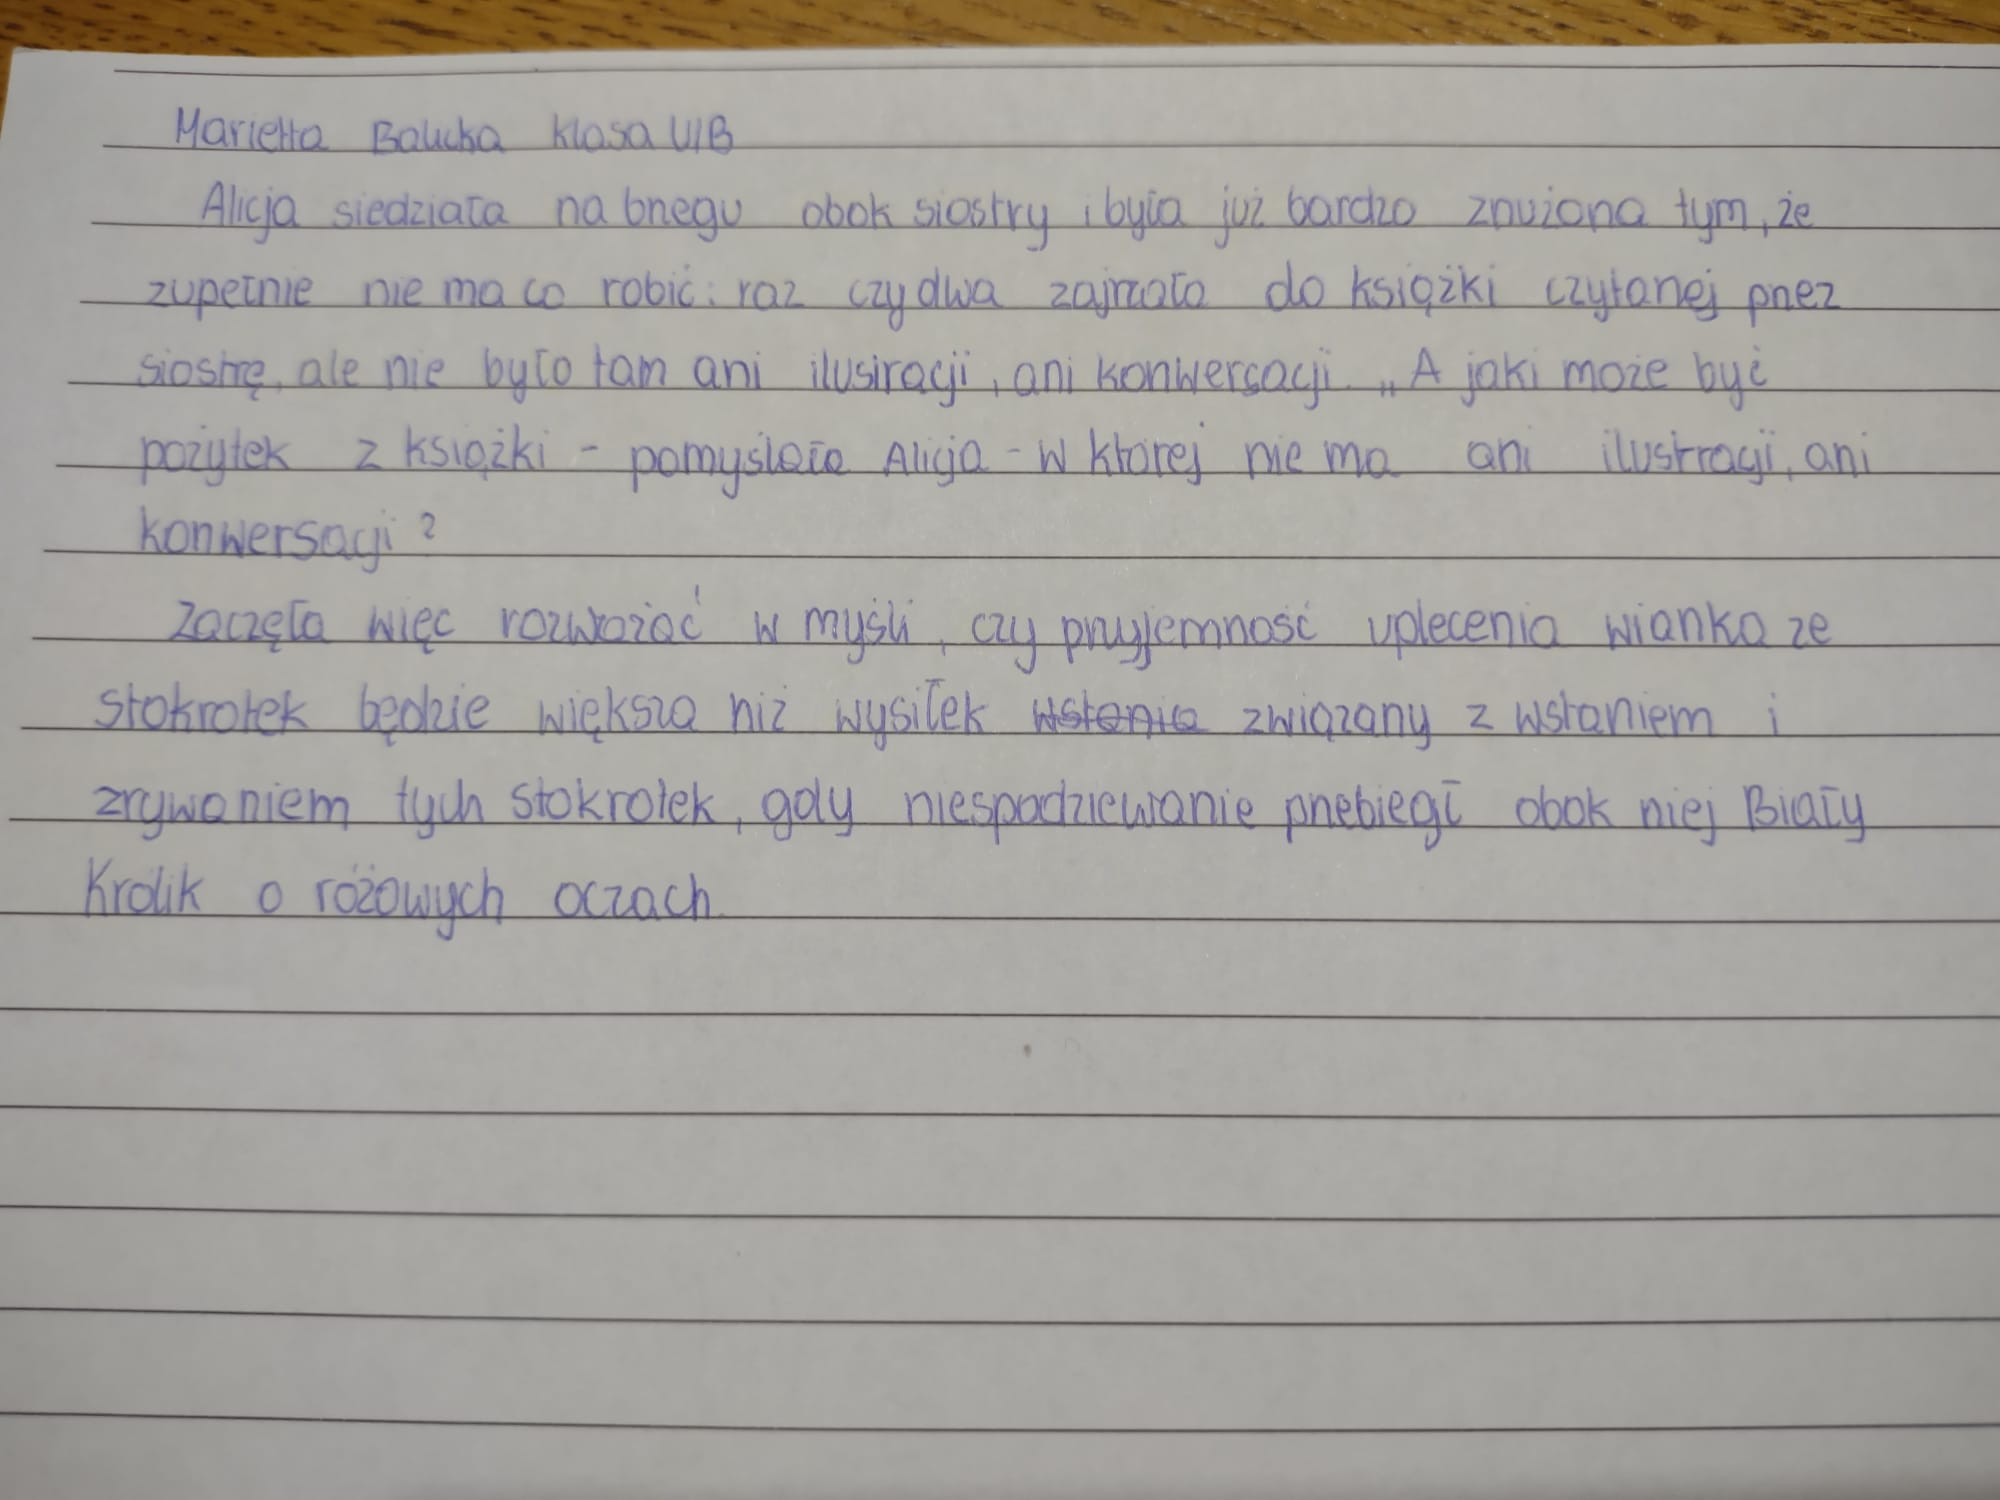 Marietta Baucka klasa VIB
Alicja siedziała na brzegu obok siostry i była już bardzo znużona tym, że
zupełnie nie ma co robić: raz czy dwa zajrzała do książki czytanej przez
siostrę, ale nie było tam ani ilustracji, ani konwersacji. „A jaki może być
pożytek z książki - pomyślała Alicja - w której nie ma ani ilustracji, ani
konwersacji?
Zaczęła więc rozważać w myśli, czy przyjemność uplecenia wianka ze
stokrotek będzie większa niż wysiłek ~~wstania~~ związany z wstaniem i
zrywaniem tych stokrotek, gdy niespodziewanie przebiegł obok niej Biały
Królik o różowych oczach.